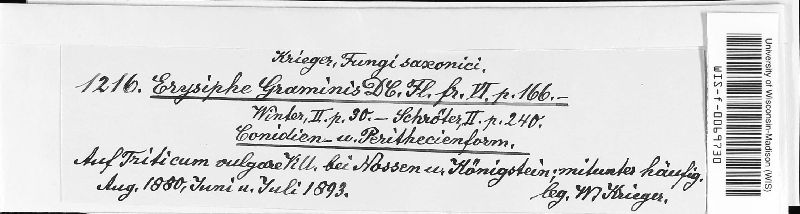 Krieger, Fungi saxonici.
1216. Erysiphe Graminis DC. Fl. fr. VI. p. 166.–
Winter, II. p. 30.– Schröter, II. p. 240.
Conidien- u. Perithecienform.
Auf Triticum vulgare Vill. bei Nossen u. Königstein; mitunter häufig.
Aug. 1880, Juni u. Juli 1893.
leg. W. Krieger.
University of Wisconsin-Madison (WIS)
WIS-f-0069730